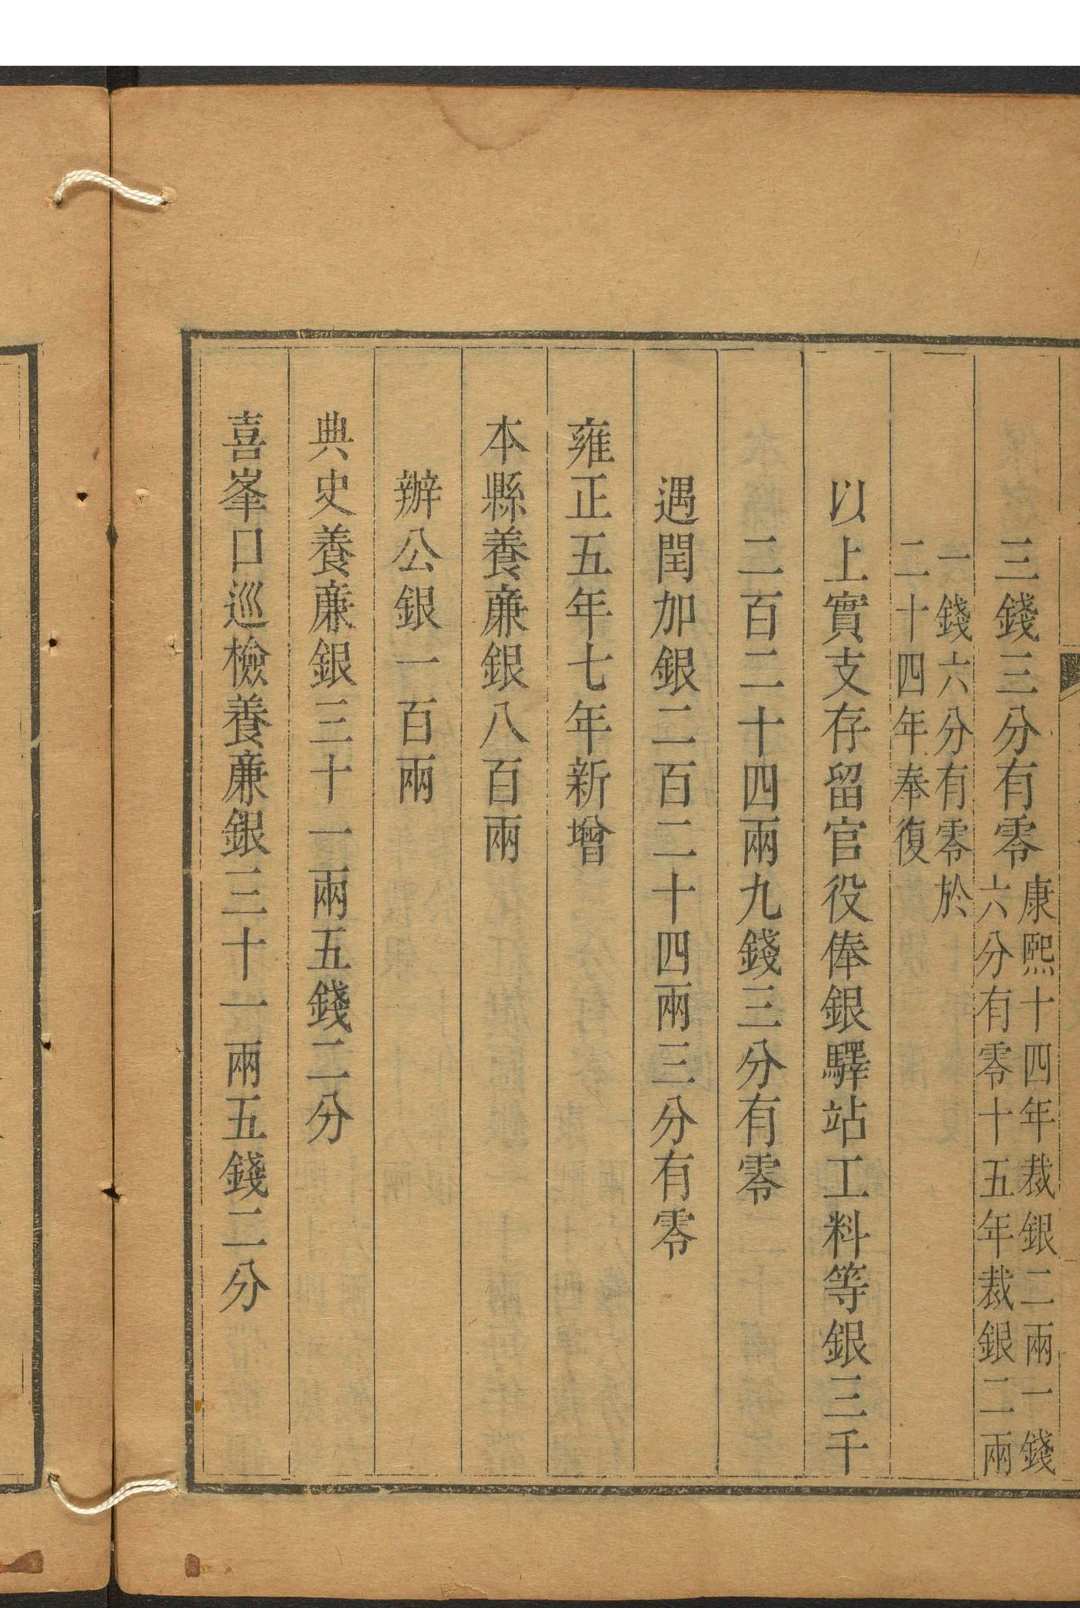 三錢三分有零
康熙十四年裁銀二兩一錢
六分有零十五年裁銀二兩
一錢六分有零於
二十四年奉復
以上實支存留官役俸銀驛站工料等銀三千
二百二十四兩九錢三分有零
遇閏加銀二百二十四兩三分有零
雍正五年七年新增
本縣養廉銀八百兩
辦公銀一百兩
典史養廉銀三十一兩五錢二分
喜峯口巡檢養廉銀三十一兩五錢二分